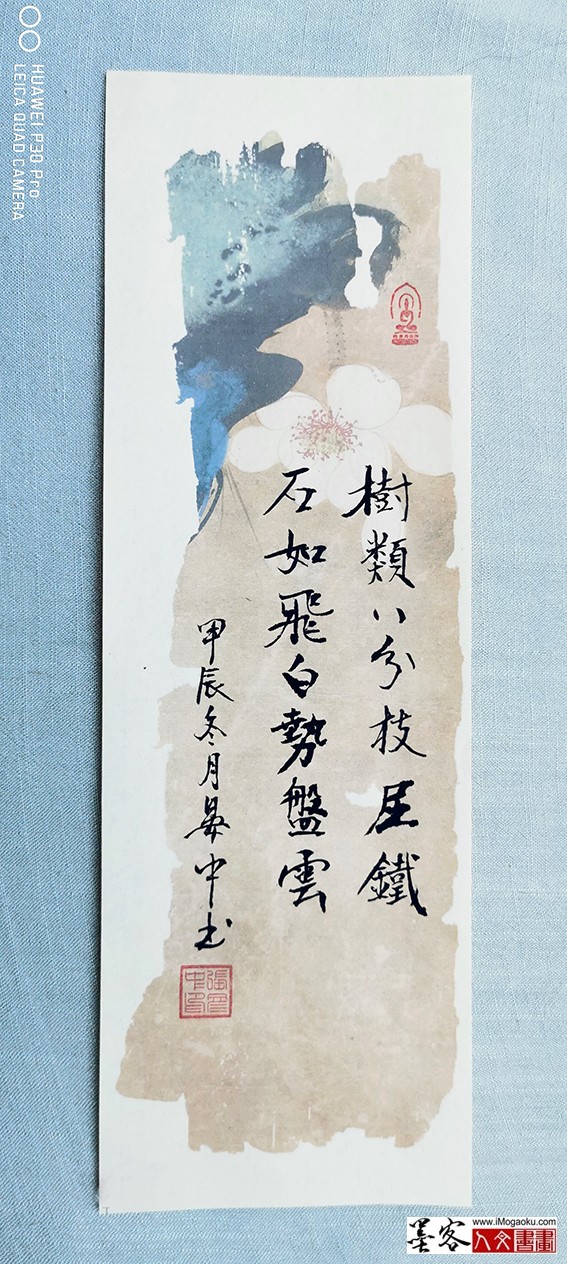 樹類八分枝屈鐵
石如飛白勢盤雲
甲辰冬月昊中书
HUAWEI P30 Pro
LEICA QUAD CAMERA
墨客
www.iMogaoku.com
人文書畫